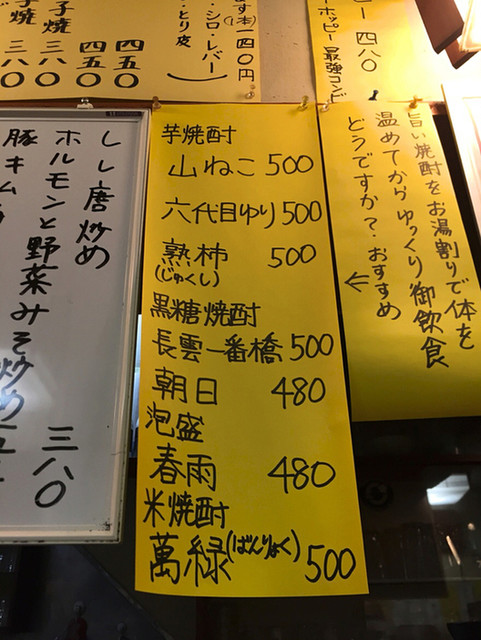 芋焼酎
山ねこ 500
六代目ゆり 500
熟柿 500
(じゅくし)
黒糖焼酎
長雲一番橋 500
朝日 480
泡盛
春雨 480
米焼酎
萬緑(ばんりょく) 500
旨い焼酎をお湯割りで体を
温めてからゆっくり御飲食
どうですか?おすすめ
←
しし唐炒め
ホルモンと野菜みそ炒め
三八〇
豚キム
す(1本)一四〇円
・シロ・レバー
・とり皮
四五〇
四五〇
子焼 三八〇
子焼 三八〇
ー 四八〇
ーホッピー 最強コンビ